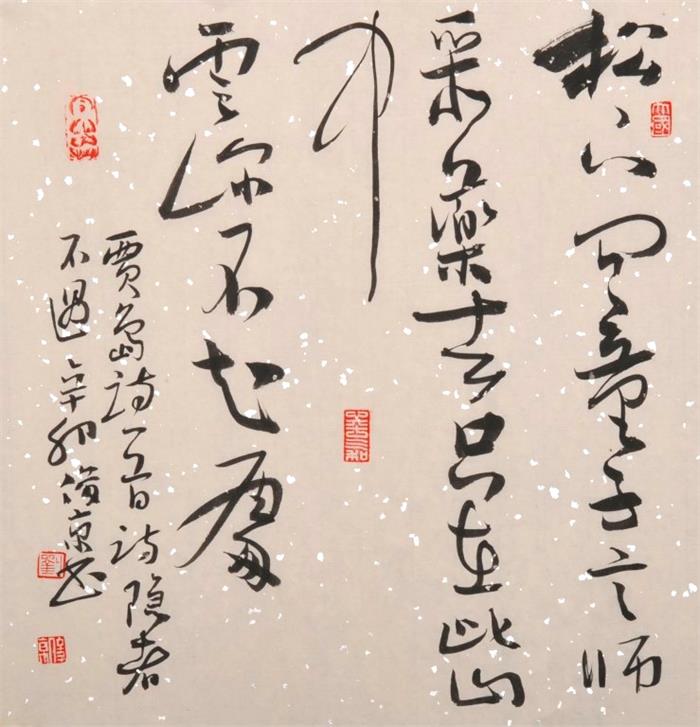 松下问童子言师
采药去只在此山
中
云深不知处
贾岛诗一首诗隐者
不遇辛卯俊京书